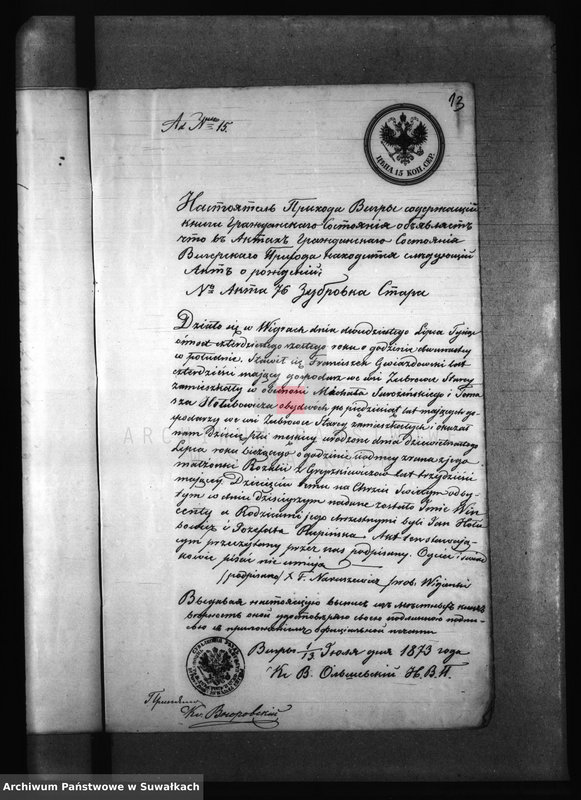 13
Ad № 15.
ЦѢНА 15 КОП. СЕР.
Настоятель Прихода Вигры содержащій
книги Гражданскаго Состоянія объявляетъ
что въ Актахъ Гражданскаго Состоянія
Вигерскаго Прихода находится слѣдующій
Актъ о рожденіи;
№ Акта 76 Зубровка Стара
Działo się w Wigrach dnia dwudziestego Lipca Tysiąc
ośmset czterdziestego szóstego roku o godzinie dwunastej
w południe, Stawił się Franciszek Gwiazdowski lat
czterdzieści mający gospodarz we wsi Zubrowce Starej
zamieszkały w obecności Michała Surożańskiego i Toma
sza Hołubowicza obydwóch po pięćdziesiąt lat mających go-
spodarzy we wsi Zubrowce Starej zamieszkałych i okazał
nam dziecię płci męskiej urodzone dnia dziewiętnastego
Lipca roku bieżącego o godzinie siódmej z rana z jego
małżonki Rozalii z Gryszkiewiczów lat trzydzieści
mającej. Dziecięciu temu na Chrzcie Świętym odby-
tym w dniu dzisiejszym nadane zostało Imię Win
centy a Rodzicami jego chrzestnymi byli Jan Hołu
bowicz i Józefata Rzepińska. Akt ten stawają-
cym przeczytany przez nas podpisany. Ojciec i świad
kowie pisać nie umieją
/podpisano/ X F. Naruszewicz prob. Wigierski
Выдавая настоящую выпись изъ метичныхъ книгъ
вѣрность оной удостовѣряю своею подписью
съ приложеніемъ оффиціальной печати
Вигры 1/13 Іюля дня 1873 года
Кс В. Ольшевскій Н. В. П.
Кс. Вогоровскій
Archiwum Państwowe w Suwałkach